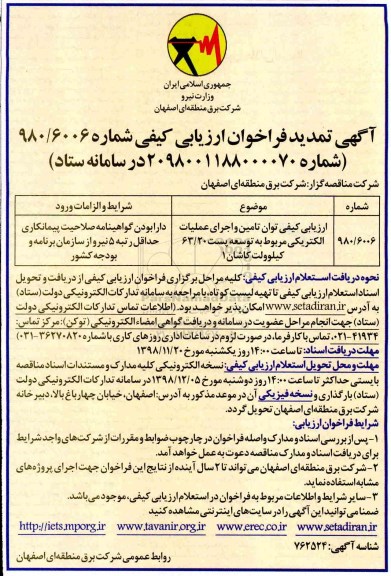 جمهوری اسلامی ایران
وزارت نیرو
شرکت برق منطقه‌ای اصفهان
آگهی تمدید فراخوان ارزیابی کیفی شماره ۹۸۰/۶۰۰۶
(شماره ۲۰۹۸۰۰۱۱۸۸۰۰۰۰۷۰ در سامانه ستاد)
شرکت مناقصه گزار: شرکت برق منطقه‌ای اصفهان
شماره موضوع شرایط و الزامات ورود
۹۸۰/۶۰۰۶ ارزیابی کیفی توان تامین و اجرای عملیات الکتریکی مربوط به توسعه پست ۶۳/۲۰ کیلوولت کاشان ۱ دارا بودن گواهینامه صلاحیت پیمانکاری حداقل رتبه ۵ نیرو از سازمان برنامه و بودجه کشور
نحوه دریافت اسـتعلام ارزیابی کیفی: کلیه مراحل برگزاری فراخوان ارزیابی کیفی از دریافت و تحویل
اسناد استعلام ارزیابی کیفی تا تهیه لیست کوتاه، با مراجعه به سامانه تدارکات الکترونیکی دولت (ستاد)
به آدرس www.setadiran.ir امکان پذیر خواهد بود. (اطلاعات تماس تدارکات الکترونیکی دولت
(ستاد) جهت انجام مراحل عضویت در سامانه و دریافت گواهی امضاء الکترونیکی (توکن): مرکز تماس:
۰۲۱-۴۱۹۳۴، تماس با کارفرما، در صورت لزوم در ساعات اداری روزهای کاری با شماره ۳۶۲۷۰۸۲۰-۰۳۱)
مهلت دریافت اسناد: تا ساعت ۱۴:۰۰ روز یکشنبه مورخ ۱۳۹۸/۱۱/۲۰
مهلت و محل تحویل استعلام ارزیابی کیفی: نسخه الکترونیکی کلیه مدارک و مستندات اسناد مناقصه
بایستی حداکثر تا ساعت ۱۴:۰۰ روز دوشنبه مورخ ۱۳۹۸/۱۲/۰۵ در سامانه تدارکات الکترونیکی دولت
(ستاد) بارگذاری و نسخه فیزیکی آن در موعد مذکور به آدرس: اصفهان، خیابان چهارباغ بالا، دبیرخانه
شرکت برق منطقه‌ای اصفهان تحویل گردد.
شرایط فراخوان ارزیابی:
۱- پس از بررسی اسناد و مدارک واصله فراخوان در چارچوب ضوابط و مقررات از شرکت های واجد شرایط
برای دریافت اسناد و مدارک مناقصه دعوت به عمل خواهد آمد.
۲- شرکت برق منطقه‌ای اصفهان می‌تواند تا ۲ سال آینده از نتایج این فراخوان جهت اجرای پروژه‌های
مشابه استفاده نماید.
۳- سایر شرایط و اطلاعات مربوط به فراخوان در استعلام ارزیابی کیفی، موجود می‌باشد.
ضمنا می‌توانید این آگهی را در سایت‌های اینترنتی مشاهده کنید
http://iets.mporg.ir www.tavanir.org.ir www.erec.co.ir www.setadiran.ir
شناسه آگهی: ۷۶۲۵۲۴ روابط عمومی شرکت برق منطقه‌ای اصفهان